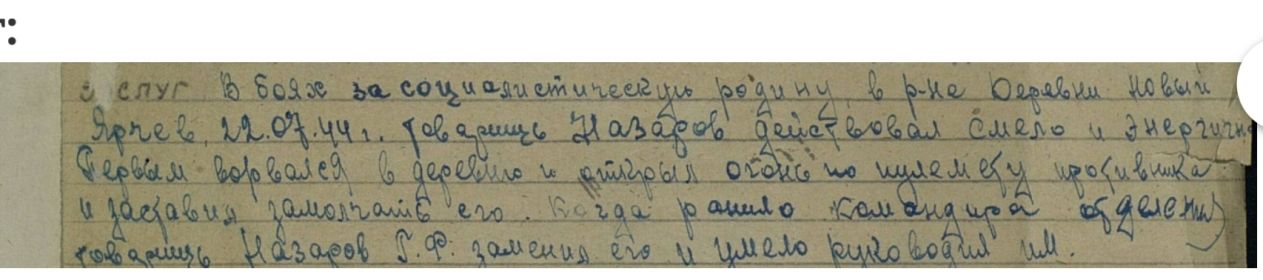 :
слуг В боях за социалистическую родину, в р-не Деревни Новый
Ярчев, 22.07.44г. товарищь Назаров действовал смело и энергично
Первым ворвался в деревню и открыл огонь по пулемету противника
и заставил замолчать его. Когда ранило командира отделения
товарищь Назаров Г.Ф. заменил его и умело руководил им.